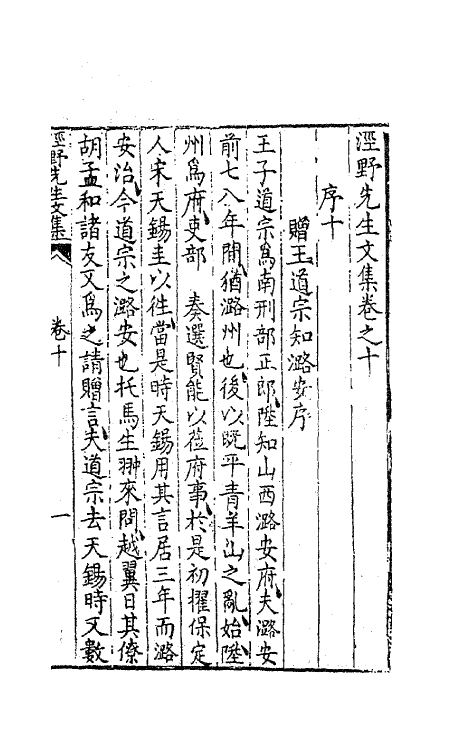 涇野先生文集卷之十
序十
贈王道宗知潞安序
王子道宗爲南刑部正郎陞知山西潞安府夫潞安
前七八年間猶潞州也後以既平青羊山之亂始陞
州爲府吏部 奏選賢能以蒞府事於是初擢保定
人宋天錫圭以徃當是時天錫用其言居三年而潞
安治今道宗之潞安也托馬生翀來問越翼日其僚
胡孟和諸友又爲之請贈言夫道宗去天錫時又數
涇野先生文集 卷十 一